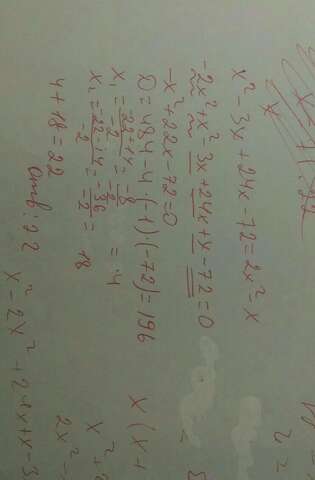 x² - 3x + 24x - 72 = 2x² - x
-2x² + x² - 3x + 24x + x - 72 = 0
-x² + 22x - 72 = 0
D = 484 - 4·(-1)·(-72) = 196
x₁ = -22+14/-2 = -8/-2 = 4
x₂ = -22-14/-2 = -36/-2 = 18
4 + 18 = 22
Ответ: 22
x² - 2x² + 24x + x - 3
x (x -
x² +
2x² -